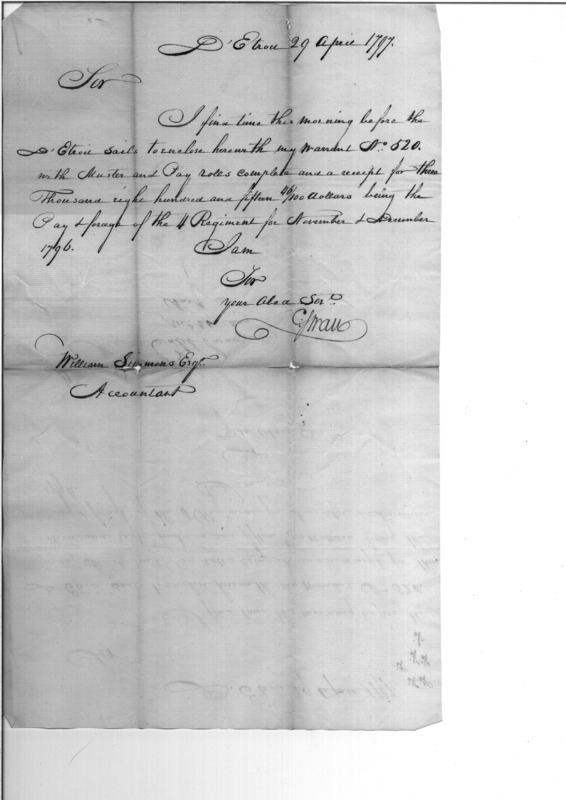 D'Etroit 29 April 1797.
Sir
I find time this morning before the
D'Etroit Sails to enclose herewith my Warrant No. 520.
with Muster and Pay roles complete and a receipt for three
Thousand eight hundred and fifteen /100 dollars being the
Pay & forage of the 4 Regiment for November & December
1796.
I am
Sir
your Obed Servt.
CSwan
William Simmons Esqr.
Accountant